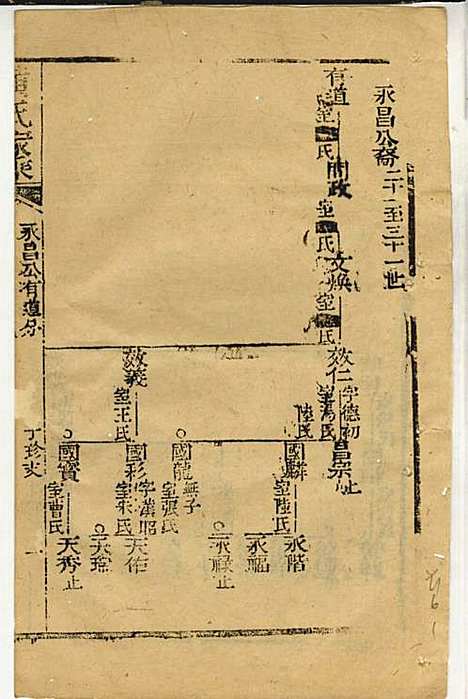 永昌公裔二十一至三十一世
有道
室■氏
開政
室■氏
文煥
室■氏
效仁字德初
室馮氏
陸氏
昌宗止
國麟
室陸氏
永階
永福
永祿止
國龍無子
室張氏
效義
室王氏
國彩字漢昭
室朱氏
天作
天瑞
國寶
室曹氏
天秀止
氏家乘
永昌公有道分
丁珍支
一